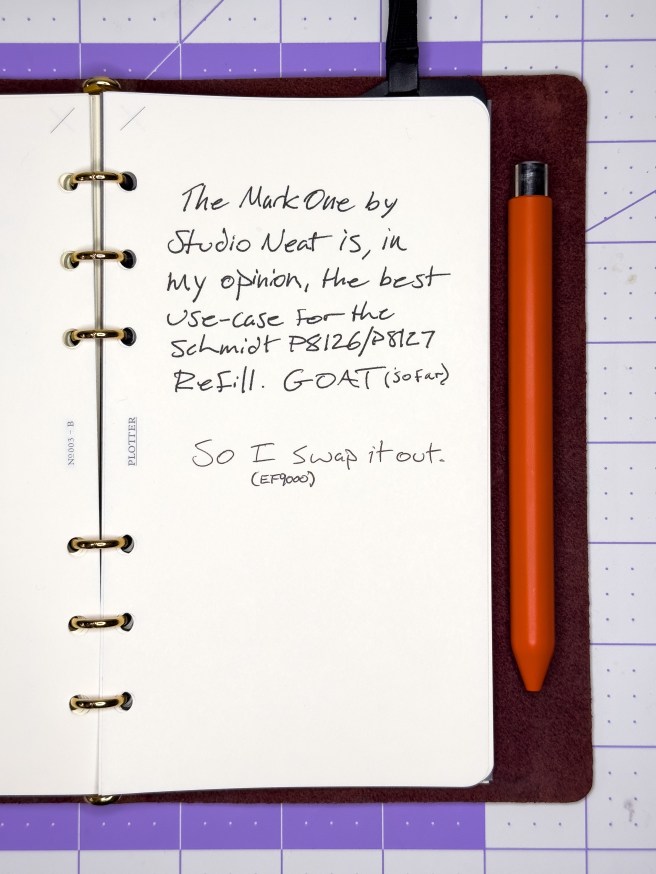 The Mark One by
Studio Neat is, in
my opinion, the best
use-case for the
Schmidt P8126/P8127
Refill. GOAT (so far)
So I swap it out.
(EF9000)
Nº003 - B
PLOTTER